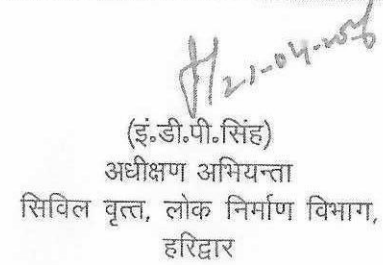 21-04-
(इं.डी.पी.सिंह)
अधीक्षण अभियन्ता
सिविल वृत्त, लोक निर्माण विभाग,
हरिद्वार